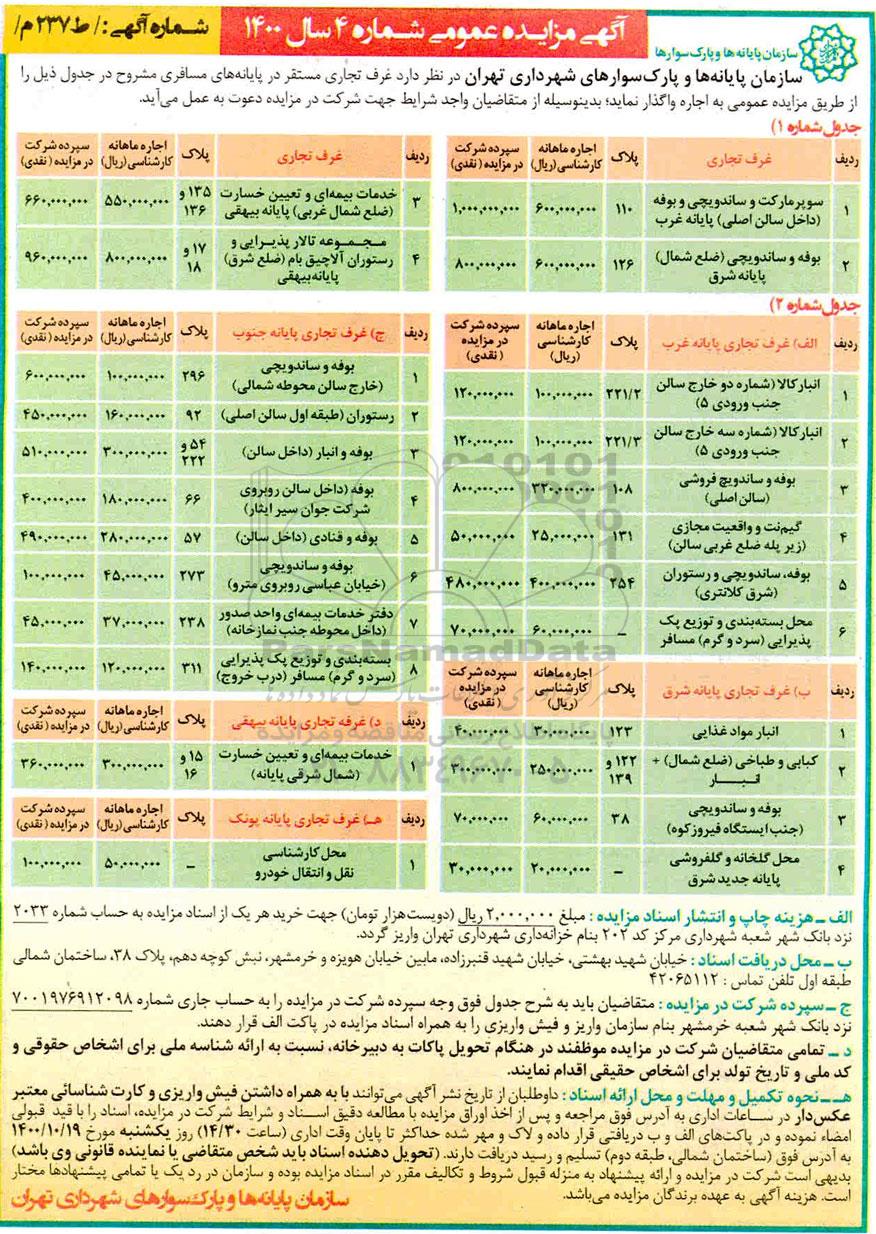 سازمان پایانه‌ها و پارک‌سوارها
آگهی مزایده عمومی شماره ۴ سال ۱۴۰۰
شماره آگهی: / ط ۲۳۷ م/
سازمان پایانه‌ها و پارک‌سوارهای شهرداری تهران در نظر دارد غرف تجاری مستقر در پایانه‌های مسافری مشروح در جدول ذیل را
از طریق مزایده عمومی به اجاره واگذار نماید؛ بدینوسیله از متقاضیان واجد شرایط جهت شرکت در مزایده دعوت به عمل می‌آید.
جدول شماره ۱)
ردیف غرف تجاری پلاک اجاره ماهانه کارشناسی (ریال) سپرده شرکت در مزایده (نقدی)
۱ سوپرمارکت و ساندویچی و بوفه (داخل سالن اصلی) پایانه غرب ۱۱۰ ۶۰۰,۰۰۰,۰۰۰ ۱,۰۰۰,۰۰۰,۰۰۰
۲ بوفه و ساندویچی (ضلع شمال) پایانه شرق ۱۲۶ ۶۰۰,۰۰۰,۰۰۰ ۸۰۰,۰۰۰,۰۰۰
ردیف غرف تجاری پلاک اجاره ماهانه کارشناسی (ریال) سپرده شرکت در مزایده (نقدی)
۳ خدمات بیمه‌ای و تعیین خسارت (ضلع شمال غربی) پایانه بیهقی ۱۳۵ و ۱۳۶ ۵۵۰,۰۰۰,۰۰۰ ۶۶۰,۰۰۰,۰۰۰
۴ مجموعه تالار پذیرایی و رستوران آلاچیق بام (ضلع شرق) پایانه بیهقی ۱۷ و ۱۸ ۸۰۰,۰۰۰,۰۰۰ ۹۶۰,۰۰۰,۰۰۰
جدول شماره ۲)
ردیف الف) غرف تجاری پایانه غرب پلاک اجاره ماهانه کارشناسی (ریال) سپرده شرکت در مزایده (نقدی)
۱ انبار کالا (شماره دو خارج سالن جنب ورودی ۵) ۲۲۱/۲ ۱۰۰,۰۰۰,۰۰۰ ۱۲۰,۰۰۰,۰۰۰
۲ انبار کالا (شماره سه خارج سالن جنب ورودی ۵) ۲۲۱/۳ ۱۰۰,۰۰۰,۰۰۰ ۱۲۰,۰۰۰,۰۰۰
۳ بوفه و ساندویچ فروشی (سالن اصلی) ۱۰۸ ۳۲۰,۰۰۰,۰۰۰ ۸۰۰,۰۰۰,۰۰۰
۴ گیم‌نت و واقعیت مجازی (زیر پله ضلع غربی سالن) ۱۳۱ ۲۵,۰۰۰,۰۰۰ ۵۰,۰۰۰,۰۰۰
۵ بوفه، ساندویچی و رستوران (شرق کلانتری) ۲۵۴ ۴۰۰,۰۰۰,۰۰۰ ۴۸۰,۰۰۰,۰۰۰
۶ محل بسته‌بندی و توزیع پک پذیرایی (سرد و گرم) مسافر – ۶۰,۰۰۰,۰۰۰ ۷۰,۰۰۰,۰۰۰
ردیف ب) غرف تجاری پایانه شرق پلاک اجاره ماهانه کارشناسی (ریال) سپرده شرکت در مزایده (نقدی)
۱ انبار مواد غذایی ۱۲۳ ۳۰,۰۰۰,۰۰۰ ۴۰,۰۰۰,۰۰۰
۲ کبابی و طباخی (ضلع شمال) + انبار ۱۲۲ و ۱۳۹ ۲۵۰,۰۰۰,۰۰۰ ۳۰۰,۰۰۰,۰۰۰
۳ بوفه و ساندویچی (جنب ایستگاه فیروزکوه) ۳۸ ۶۰,۰۰۰,۰۰۰ ۷۰,۰۰۰,۰۰۰
۴ محل گلخانه و گلفروشی پایانه جدید شرق – ۲۰,۰۰۰,۰۰۰ ۳۰,۰۰۰,۰۰۰
ردیف ج) غرف تجاری پایانه جنوب پلاک اجاره ماهانه کارشناسی (ریال) سپرده شرکت در مزایده (نقدی)
۱ بوفه و ساندویچی (خارج سالن محوطه شمالی) ۲۹۶ ۱۰۰,۰۰۰,۰۰۰ ۶۰۰,۰۰۰,۰۰۰
۲ رستوران (طبقه اول سالن اصلی) ۹۲ ۱۶۰,۰۰۰,۰۰۰ ۴۵۰,۰۰۰,۰۰۰
۳ بوفه و انبار (داخل سالن) ۵۴ و ۲۲۲ ۳۰۰,۰۰۰,۰۰۰ ۵۱۰,۰۰۰,۰۰۰
۴ بوفه (داخل سالن روبروی شرکت جوان سیر ایثار) ۶۶ ۱۸۰,۰۰۰,۰۰۰ ۴۰۰,۰۰۰,۰۰۰
۵ بوفه و قنادی (داخل سالن) ۵۷ ۲۸۰,۰۰۰,۰۰۰ ۴۹۰,۰۰۰,۰۰۰
۶ بوفه و ساندویچی (خیابان عباسی روبروی مترو) ۲۷۳ ۴۵,۰۰۰,۰۰۰ ۱۰۰,۰۰۰,۰۰۰
۷ دفتر خدمات بیمه‌ای واحد صدور (داخل محوطه جنب نمازخانه) ۲۳۸ ۳۷,۰۰۰,۰۰۰ ۴۵,۰۰۰,۰۰۰
۸ بسته‌بندی و توزیع پک پذیرایی (سرد و گرم) مسافر (درب خروج) ۳۱۱ ۱۲۰,۰۰۰,۰۰۰ ۱۴۰,۰۰۰,۰۰۰
ردیف د) غرفه تجاری پایانه بیهقی پلاک اجاره ماهانه کارشناسی (ریال) سپرده شرکت در مزایده (نقدی)
۱ خدمات بیمه‌ای و تعیین خسارت (شمال شرقی پایانه) ۱۵ و ۱۶ ۳۰۰,۰۰۰,۰۰۰ ۳۶۰,۰۰۰,۰۰۰
ردیف هـ) غرف تجاری پایانه پونک پلاک اجاره ماهانه کارشناسی (ریال) سپرده شرکت در مزایده (نقدی)
۱ محل کارشناسی نقل و انتقال خودرو – ۵۰,۰۰۰,۰۰۰ ۱۰۰,۰۰۰,۰۰۰
ParsNamadData
الف ـ هزینه چاپ و انتشار اسناد مزایده : مبلغ ۲,۰۰۰,۰۰۰ ریال (دویست هزار تومان) جهت خرید هر یک از اسناد مزایده به حساب شماره ۲۰۳۳
نزد بانک شهر شعبه شهرداری مرکز کد ۲۰۲ بنام خزانه‌داری شهرداری تهران واریز گردد.
ب ـ محل دریافت اسناد : خیابان شهید بهشتی، خیابان شهید قنبرزاده، مابین خیابان هویزه و خرمشهر، نبش کوچه دهم، پلاک ۳۸، ساختمان شمالی
طبقه اول تلفن تماس : ۴۲۰۶۵۱۱۲
ج ـ سپرده شرکت در مزایده : متقاضیان باید به شرح جدول فوق وجه سپرده شرکت در مزایده را به حساب جاری شماره ۷۰۰۱۹۷۶۹۱۲۰۹۸
نزد بانک شهر شعبه خرمشهر بنام سازمان واریز و فیش واریزی را به همراه اسناد مزایده در پاکت الف قرار دهند.
د ـ تمامی متقاضیان شرکت در مزایده موظفند در هنگام تحویل پاکات به دبیرخانه، نسبت به ارائه شناسه ملی برای اشخاص حقوقی و
کد ملی و تاریخ تولد برای اشخاص حقیقی اقدام نمایند.
هـ ـ نحوه تکمیل و مهلت و محل ارائه اسناد : داوطلبان از تاریخ نشر آگهی می‌توانند با به همراه داشتن فیش واریزی و کارت شناسائی معتبر
عکس‌دار در ساعات اداری به آدرس فوق مراجعه و پس از اخذ اوراق مزایده با مطالعه دقیق اسناد و شرایط شرکت در مزایده، اسناد را با قید قبولی
امضاء نموده و در پاکت‌های الف و ب دریافتی قرار داده و لاک و مهر شده حداکثر تا پایان وقت اداری (ساعت ۱۴/۳۰) روز یکشنبه مورخ ۱۴۰۰/۱۰/۱۹
به آدرس فوق (ساختمان شمالی، طبقه دوم) تسلیم و رسید دریافت دارند. (تحویل دهنده اسناد باید شخص متقاضی یا نماینده قانونی وی باشد)
بدیهی است شرکت در مزایده و ارائه پیشنهاد به منزله قبول شروط و تکالیف مقرر در اسناد مزایده بوده و سازمان در رد یک یا تمامی پیشنهادها مختار
است. هزینه آگهی به عهده برندگان مزایده می‌باشد.
سازمان پایانه‌ها و پارک‌سوارهای شهرداری تهران